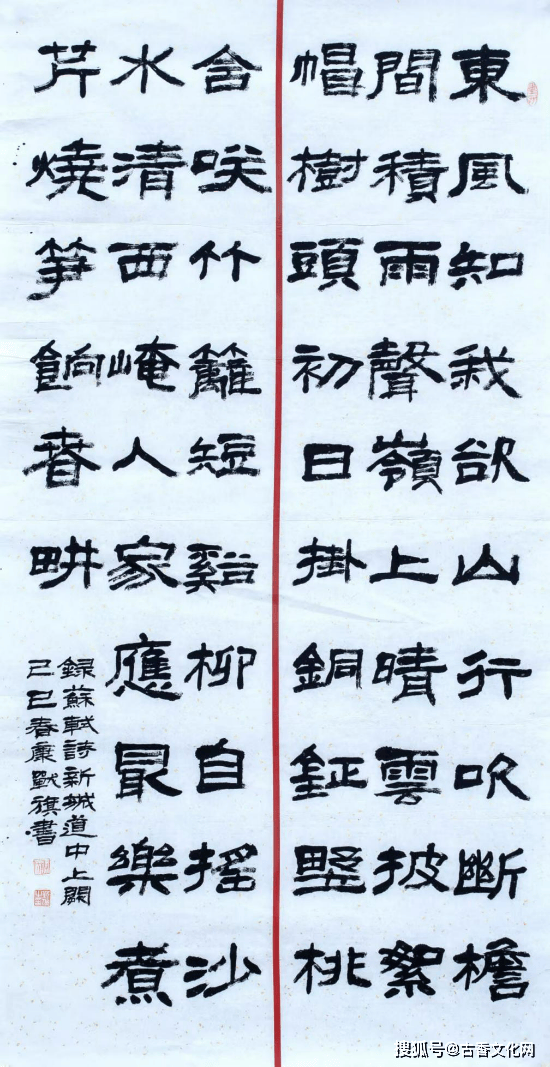 東風知我欲山行吹斷檐
間積雨聲嶺上晴雲披絮
帽樹頭初日掛銅鉦野桃
含咲竹籬短谿柳自搖沙
水清西崦人家應最樂煮
芹燒笋餉春畊
録蘇軾詩新城道中上闋
己巳春廉戰旗書
搜狐号@古香文化网